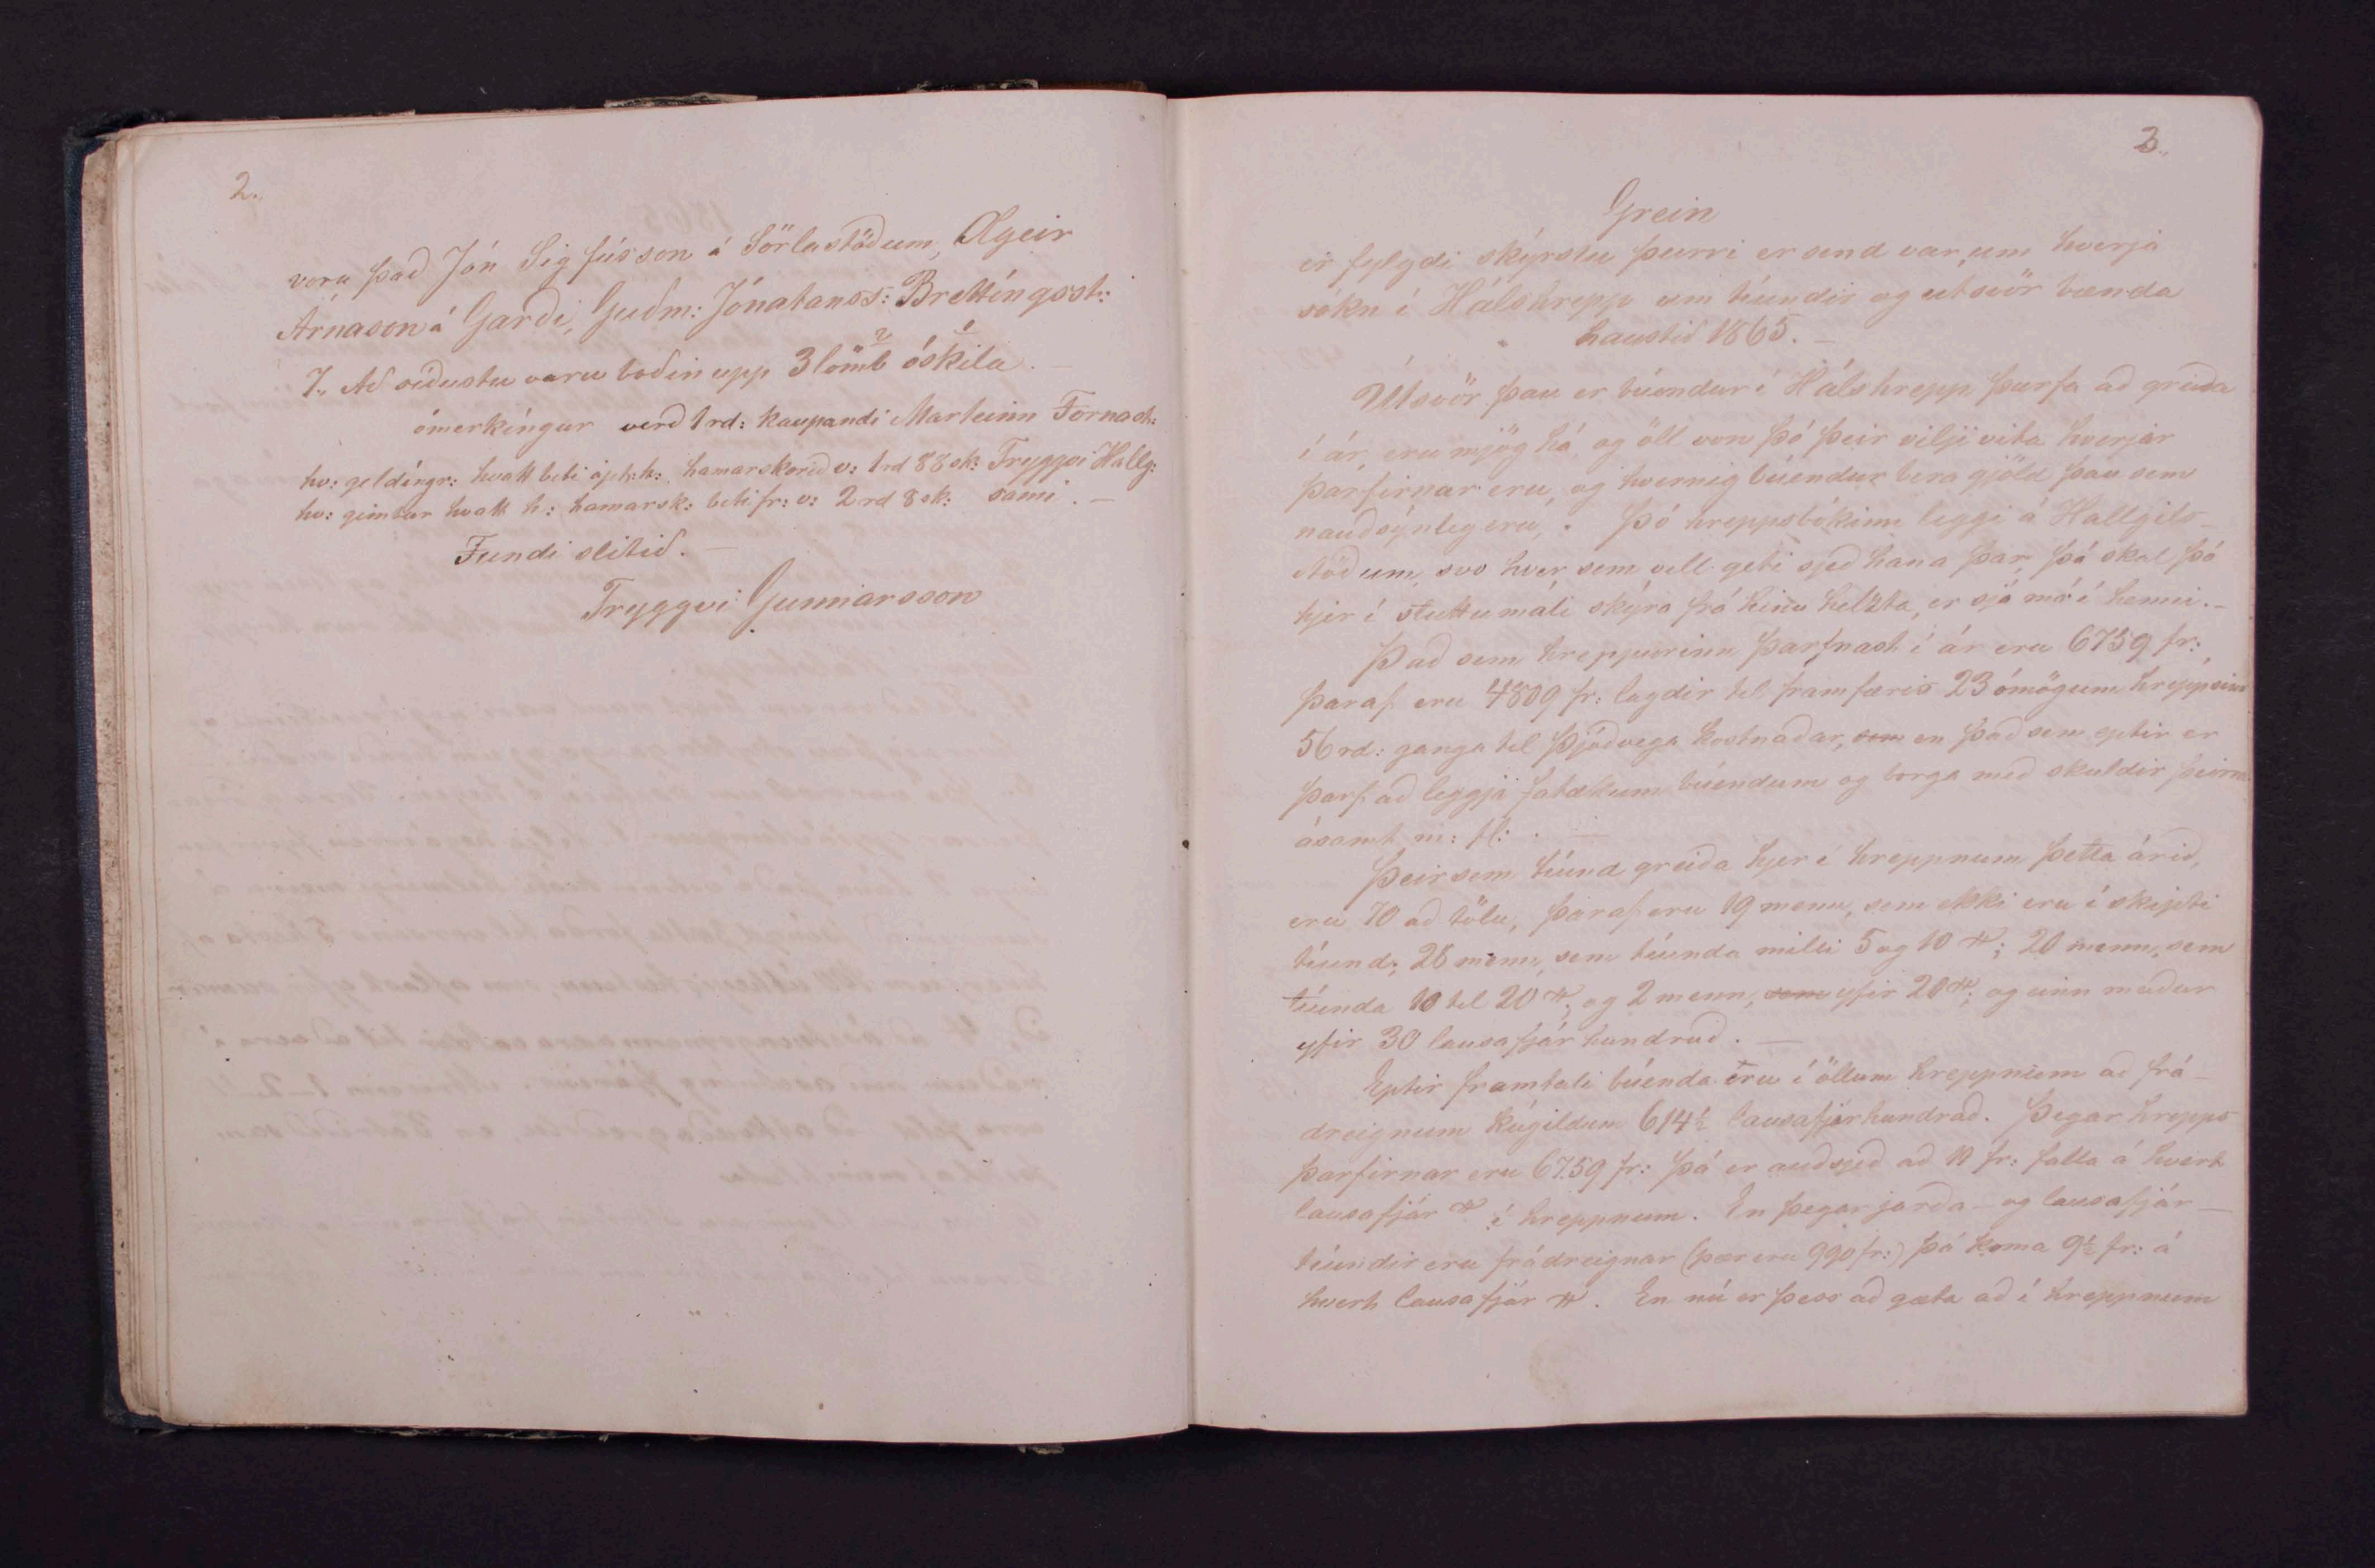 2.
voru það Jón Sigfússon á Sörlastöðum, Ásgeir
Árnason á Garði, Guðm: Jónatanss: Brettíngsst:
7., Að síðustu voru boðin upp 3 lömb óskila. —
ómerkíngur verð 1 rd: kaupandi Marteinn Fornast:
hv: geldíngr: hvatt biti apt: h: hamarskorið v: 1rd 88 sk: Tryggvi Hallg:
hv: gimbur hvatt h: hamarsk: biti fr: v: 2 rd 8 sk: sami. —
Fundi slitið. —
Tryggvi Gunnarsson
3.
Grein
er fylgdi skýrslu þeirri er send var, um hverja
sókn í Hálshrepp um tíundir og útsvör bænda
haustið 1865. —
Útsvör þau er búendur í Hálshrepp þurfa að greiða
í ár, eru mjög há, og öll von þó þeir vilji vita hverjar
þarfirnar eru, og hvernig búendur bera gjöld þau sem
nauðsýnleg eru. Þó hreppsbókinn liggi á Hallgils-
stöðum, svo hver sem vill geti sjeð hana þar, þá skal þó
hjer í stuttu máli skýra frá hinu helzta, er sjá má í henni. —
Það sem hreppurinn þarfnast í ár eru 6759 fr:
þaraf eru 4809 fr: lagðir til framfæris 23 ómögum hreppsins
56 rd: ganga til Þjóðvega kostnaðar, som en það sem eptir er
þarf að leggja fátækum búendum og borga með skuldir þeirra
ásamt m: fl: . —
Þeir sem tíund greiða hjer í hreppnum þetta árið,
eru 70 að tölu, þaraf eru 19 menn, sem ekki eru í skipti
tíund; 28 menn, sem tíunda milli 5 og 10 #; 20 menn, sem
tíunda 10 til 20 #; og 2 menn, som yfir 20 #; og einn maður
yfir 30 lausafjár hundruð. —
Eptir framtali búenda eru í öllum hreppnum að frá-
dreignum kúgildum 614½ lausafjárhundrað. Þegar hrepps-
þarfirnar eru 6759 fr: þá er auðsjeð að 11 fr: falla á hvert
lausafjár # í hreppnum. En þegar jarða- og lausafjár-
tíundir eru frádreignar (þær eru 990 fr:) þá koma 9½ fr: á
hvert lausafjár #. En nú er þess að gæta að í hreppnum